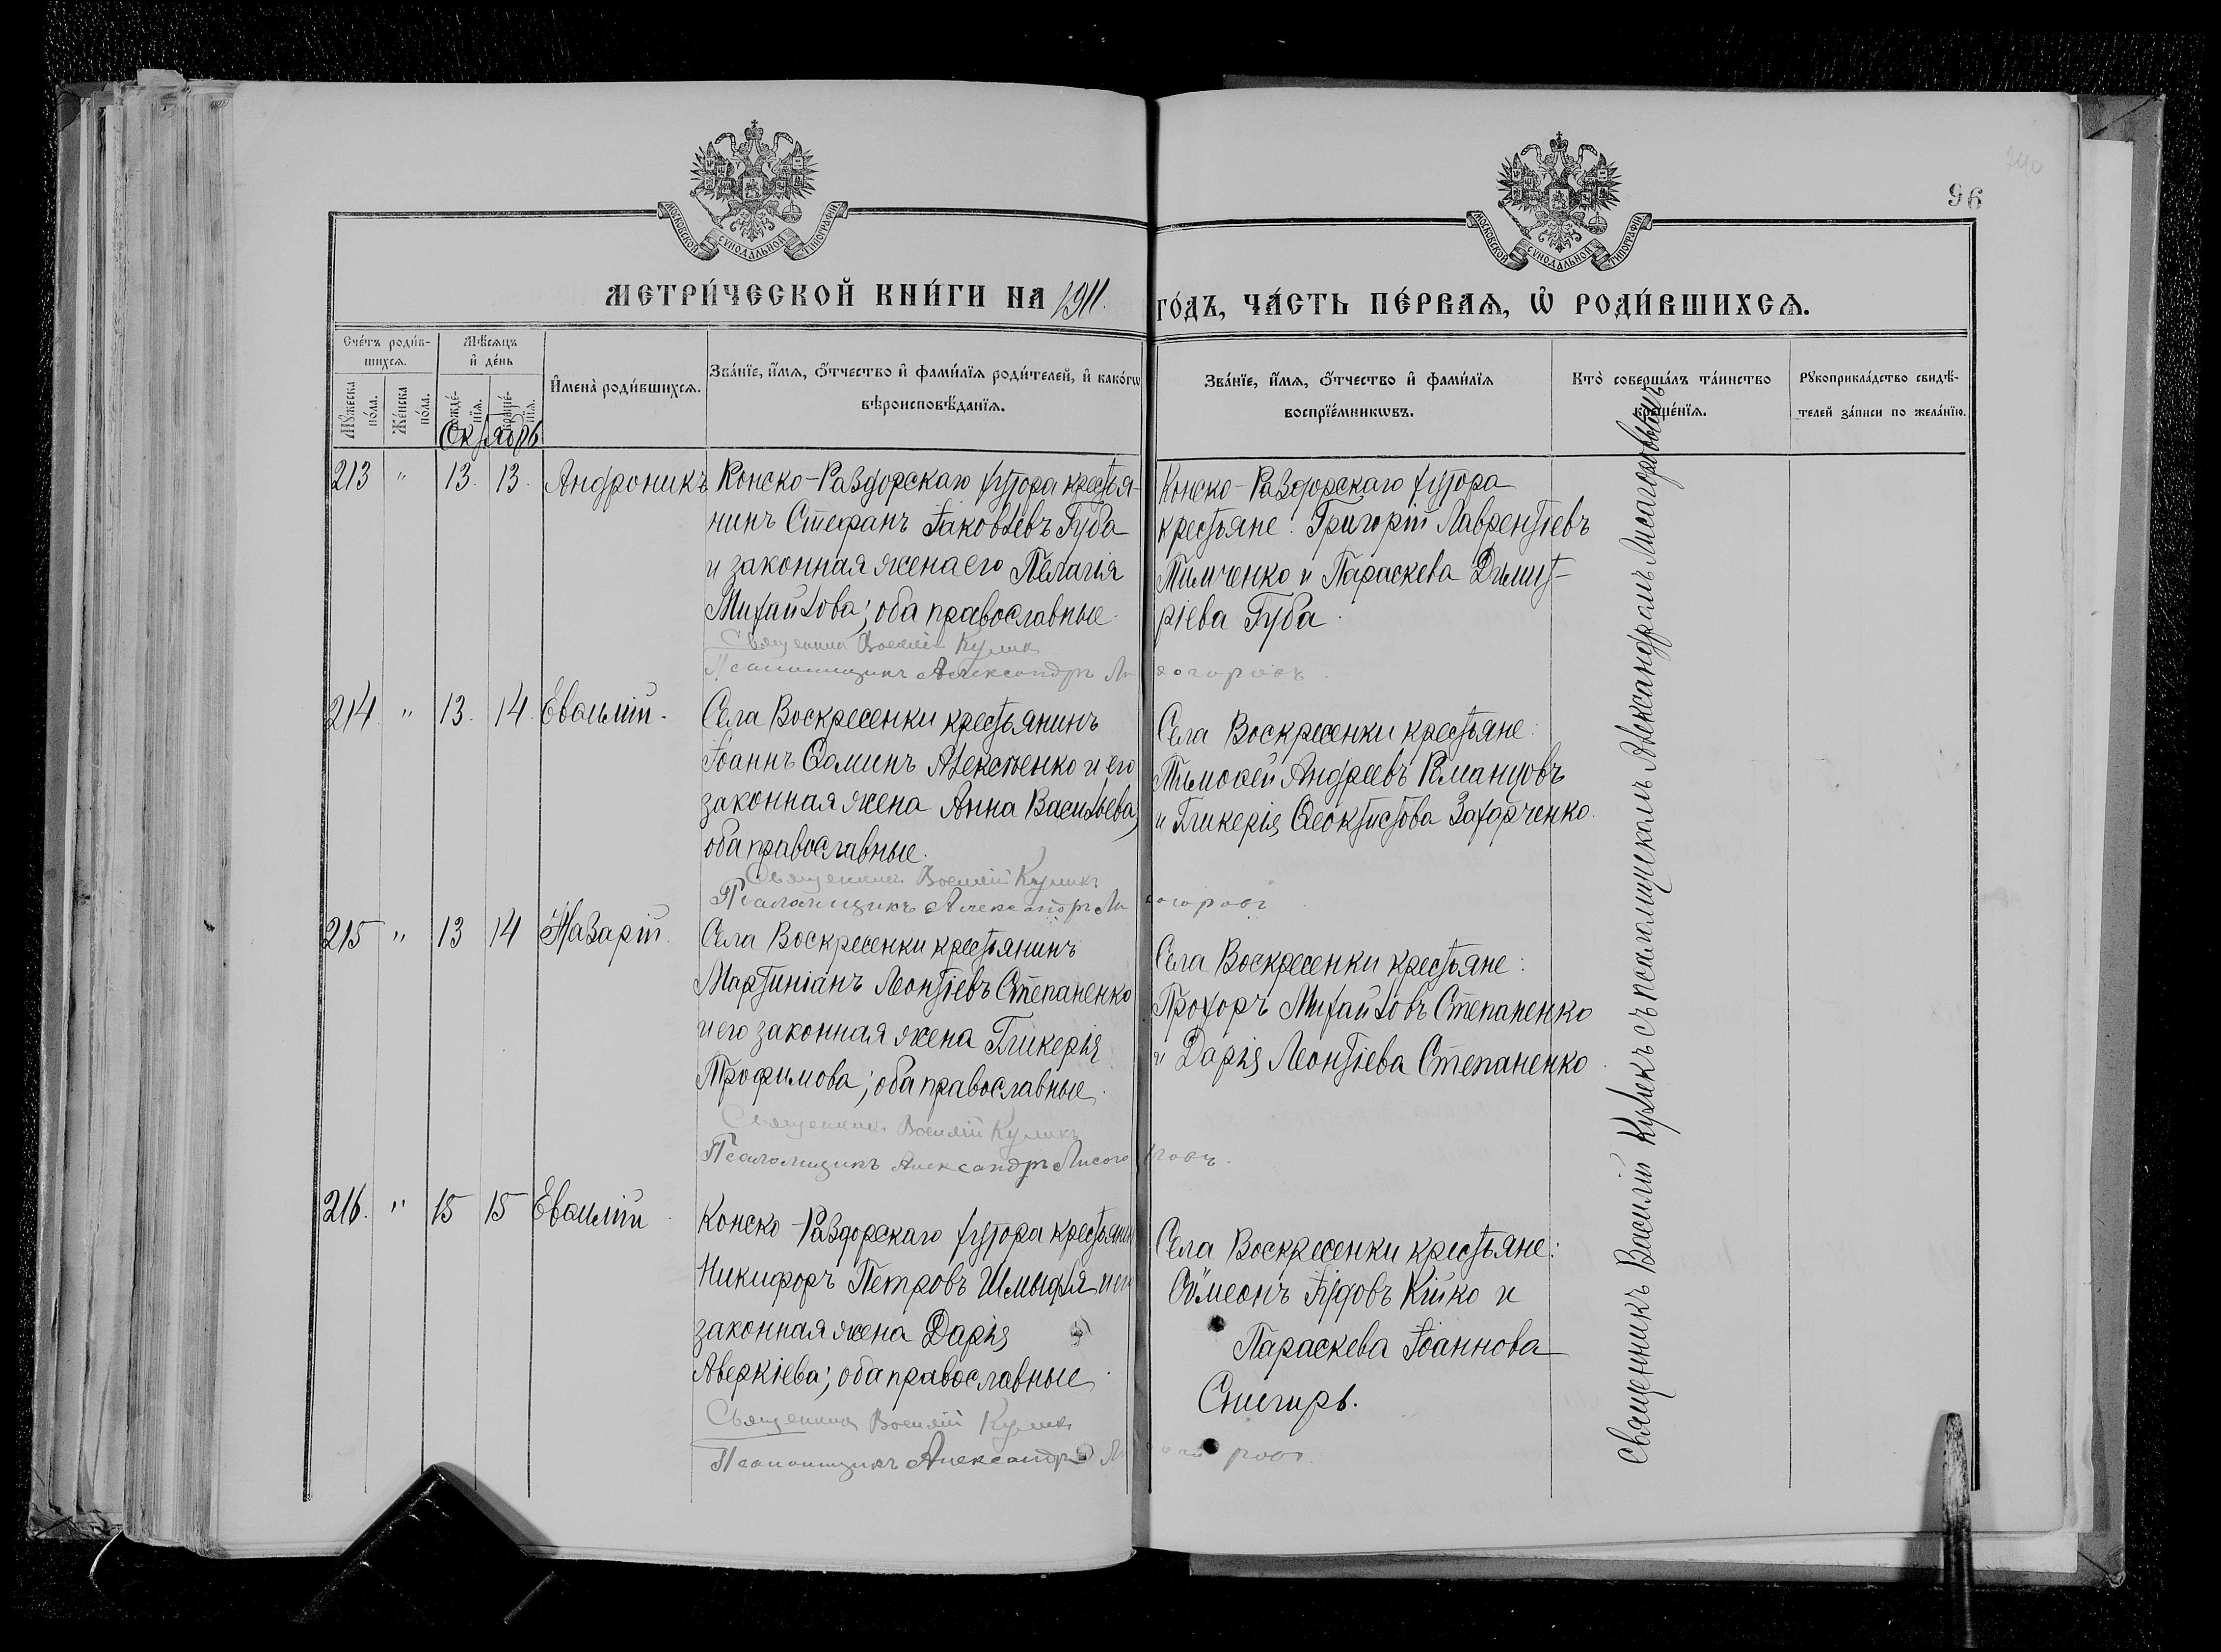 96
МОСКОВСКОЙ СѴНОДАЛЬНОЙ ТИПОГРАФІИ
МОСКОВСКОЙ СѴНОДАЛЬНОЙ ТИПОГРАФІИ
МЕТРИ́ЧЕСКОЙ КНИ́ГИ НА 1911.
ГО́ДЪ, ЧА́СТЬ ПЕ́РВАѦ, Ѡ҆ РОДИ́ВШИХСѦ.
Сче́тъ роди́в-
шихсѧ.
Мꙋ́жеска по́ла.
Же́нска по́ла.
Мѣ́сѧцъ
и҆ де́нь
рожде́-нїѧ.
креще́-нїѧ.
И҆мена̀ роди́вшихсѧ.
Зва́нїе, и҆́мѧ, ѻ҆́тчество и҆ фами́лїѧ роди́телей, и҆ како́гѡ
вѣроисповѣ́данїѧ.
Зва́нїе, и҆́мѧ, ѻ҆́тчество и҆ фами́лїѧ
воспрїе́мникѡвъ.
Кто̀ соверша́лъ та́инство
креще́нїѧ.
Рꙋкоприкла́дство свидѣ́-
телей за́писи по жела́нїю.
Октябрь
213 " 13. 13. Андроникъ
Конско-Раздорскаго хутора крестья-
нинъ Стефанъ Іаковлевъ Губа
и законная жена его Пелагія
Михайлова; оба православные.
Священникъ Василій Куликъ
Псаломщикъ Александръ Лисогоровъ.
Конско-Раздорскаго хутора
крестьяне: Григорій Лаврентіевъ
Тимченко и Параскева Димит-
ріева Губа.
214. " 13. 14. Евѳимій.
Села Воскресенки крестьянинъ
Іоаннъ Ѳоминъ Алексѣенко и его
законная жена Анна Васильева;
оба православные.
Священникъ Василій Куликъ
Псаломщикъ Александръ Лисогоровъ
Села Воскресенки крестьяне:
Тимоѳей Андреевъ
и Гликерія Ѳеоктистова Захарченко.
215 " 13 14 Назарій.
Села Воскресенки крестьянинъ
Мартиніанъ Леонтіевъ Степаненко
и его законная жена Гликерія
Трофимова; оба православные.
Священникъ Василій Куликъ
Псаломщикъ Александръ Лисогоровъ.
Села Воскресенки крестьяне:
Прохоръ Михайловъ Степаненко
и Дарія Леонтіева Степаненко.
216. " 15 15 Евѳимій.
Конско-Раздорскаго хутора крестьянин
Никифоръ Петровъ Шмыгля и его
законная жена Дарія
Аверкіева; оба православные.
Священникъ Василій Куликъ
Псаломщикъ Александръ Лисогоровъ.
Села Воскресенки крестьяне:
Сѵмеонъ Іудовъ Кійко и
Параскева Іоаннова
Снигирь.
Священникъ Василій Куликъ съ псаломщикомъ Александромъ Лисагоровымъ